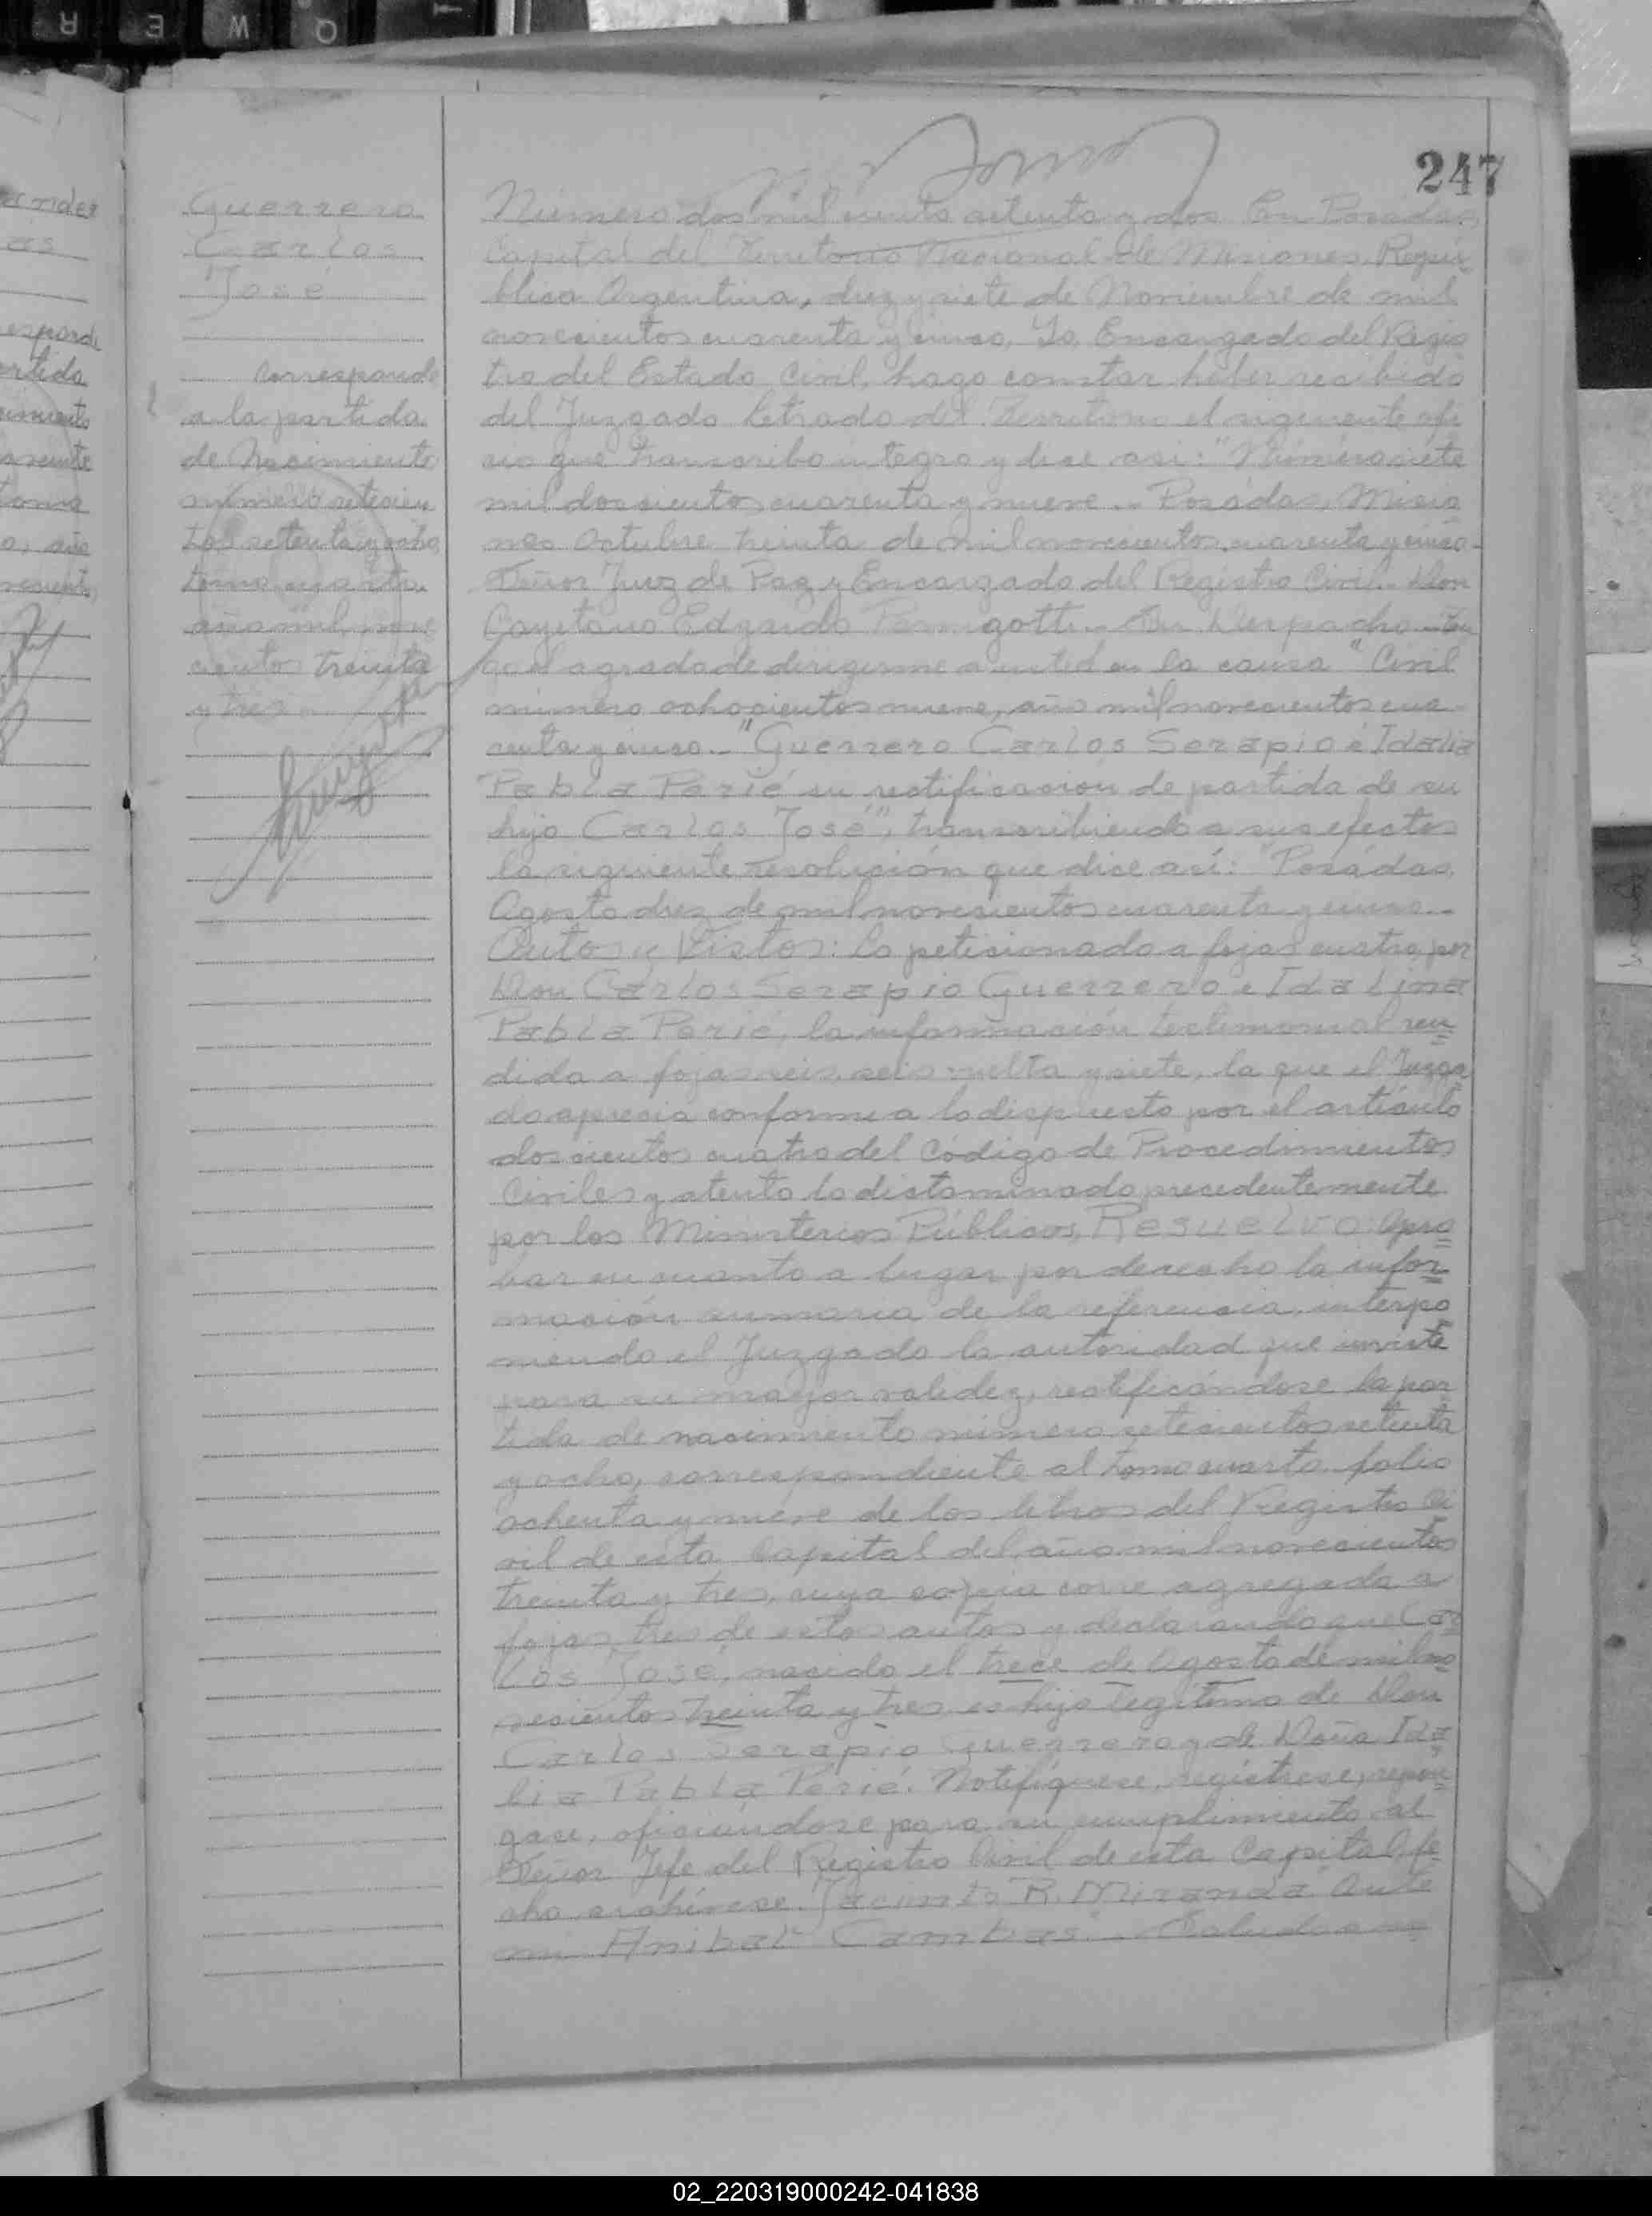 247
Guerrero
Carlos
José
Corresponde
a la partida
de Nacimiento
número setecien
tos setenta y ocho
tomo cuarto
año mil nove
cientos treinta
y tres
Número dos mil ciento setenta y dos En Posadas,
Capital del Territorio Nacional de Misiones, Repú
blica Argentina, diez y siete de Noviembre de mil
novecientos cuarenta y cinco, Yo, Encargado del Regis
tro del Estado Civil, hago constar haber recibido
del Juzgado Letrado del Territorio el siguiente ofi
cio que transcribo integro y dice así: "Número siete
mil doscientos cuarenta y nueve.- Posadas, Misio
nes Octubre treinta de mil novecientos cuarenta y cinco.-
Señor Juez de Paz y Encargado del Registro Civil.- Don
Cayetano Edgardo .- Su Despacho.- Ten
go el agrado de dirigirme a usted en la causa "Civil
número ochocientos nueve, año mil novecientos cua
renta y cinco.- "Guerrero Carlos Serapio é Idalia
Pabla Perié su rectificación de partida de su
hijo Carlos José", transcribiendo a sus efectos
la siguiente resolución que dice así: "Posadas,
Agosto diez de mil novecientos cuarenta y cinco.-
Autos y Vistos: Lo peticionado a fojas cuatro por
Don Carlos Serapio Guerrero e Idalina
Pabla Perié, la información testimonial ren
dida a fojas seis, seis vuelta y siete, la que el Juzga
do aprecia conforme a lo dispuesto por el artículo
doscientos cuatro del Código de Procedimientos
Civiles y atento lo dictaminado precedentemente
por los Ministerios Públicos, Resuelvo: Apro
bar en cuanto a lugar por derecho la infor
mación sumaria de la referencia, interpo
niendo el Juzgado la autoridad que inviste
para su mayor validez, rectificándose la par
tida de nacimiento número setecientos setenta
y ocho, correspondiente al tomo cuarto, folio
ochenta y nueve de los libros del Registro Ci
vil de esta Capital del año mil novecientos
treinta y tres, cuya copia corre agregada a
fojas tres de estos autos y declarando que Car
los José, nacido el trece de Agosto de mil no
vecientos treinta y tres es hijo legítimo de Don
Carlos Serapio Guerrero y de Doña Ida
lia Pabla Perié. Notifíquese, regístrese, repón
gase, oficiándose para su cumplimiento al
Señor Jefe del Registro Civil de esta Capital, fe
cho archívese. Jacinto R. Miranda Ante
mi Anibal Cambas".- Saludo a
02_220319000242-041838